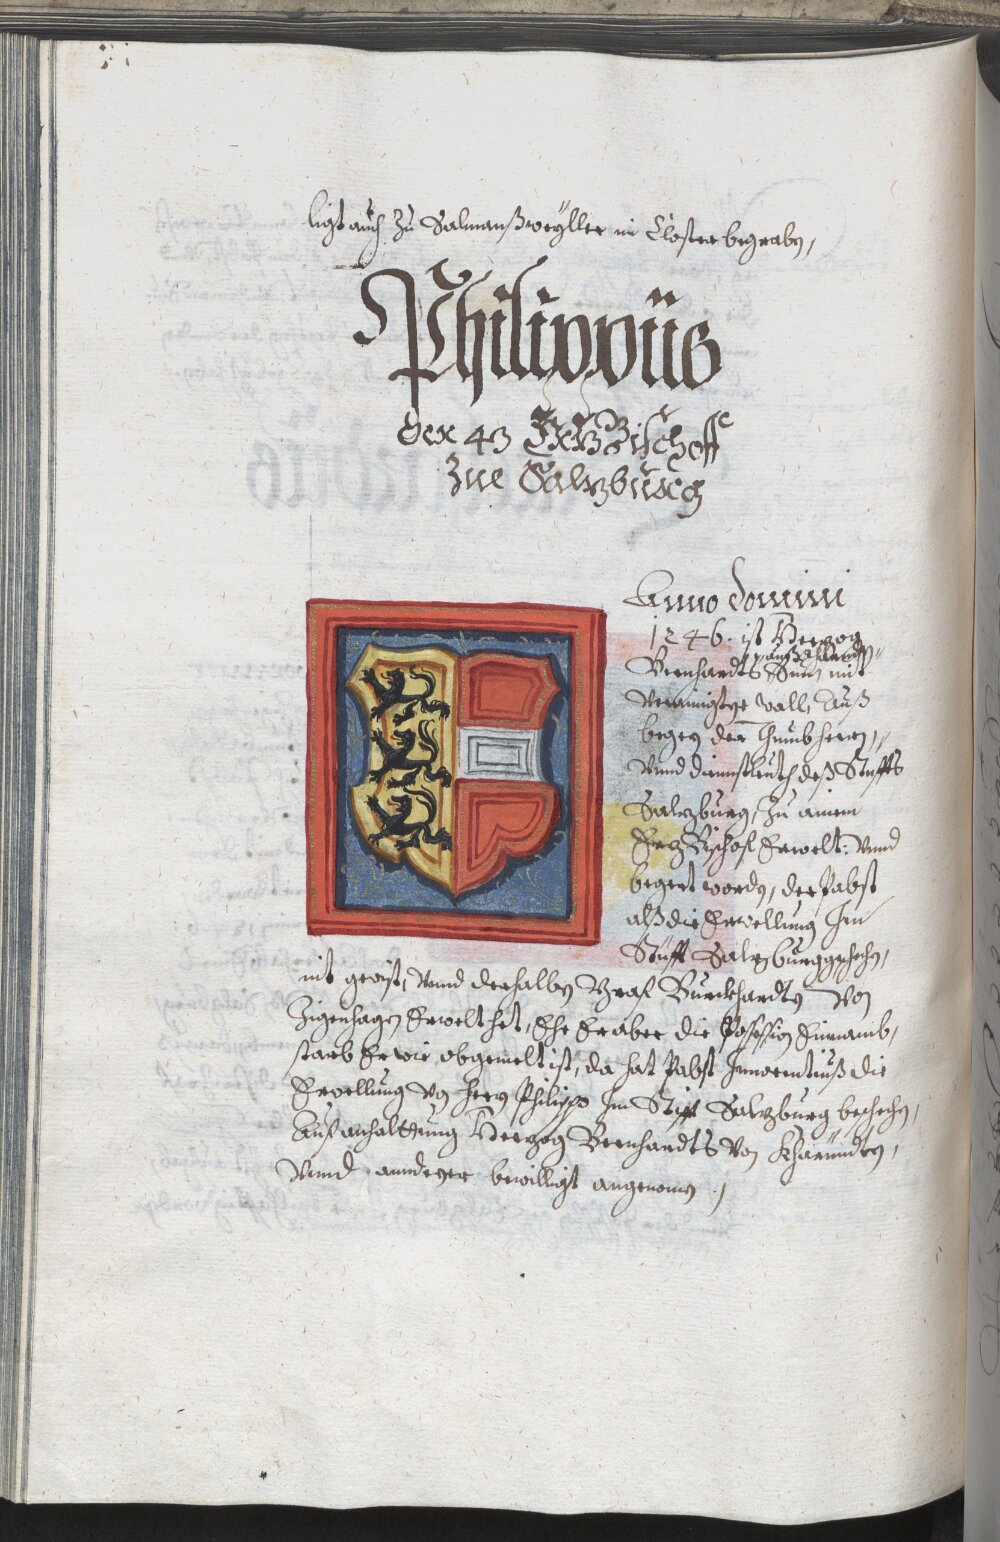 ligt auch zu Salmanßweyller im Closter begraben,
Philippüs
der 43 ErzBischoff
zue Salzburg
Anno domini
1246. ist Herzog
Bernhardts Sun mit
verainigtge wall, Auß
begern der Thumbherrn,
vnnd dienstleuth deß Stiffts
Salzburg, zu ainem
ErzBischof Erwelt, vnnd
begert worden, der Pabst
alß die Erwellung Im
Stüfft Salzburg geschehen,
nit gewist, vnnd derhalben Graf Burckhardten von
Zigenhagen Erwelt het, Ehe Er aber die Possession Einnamb,
starb Er wie obgemelt ist, da hat Pabst Innocentiuß die
Erwellung von herrn Philippo Im Stifft Salzburg beschehen,
Auf anhalttung Herzog Bernhardts von Khärndten,
vnnd annderer bewilligt angenomen.